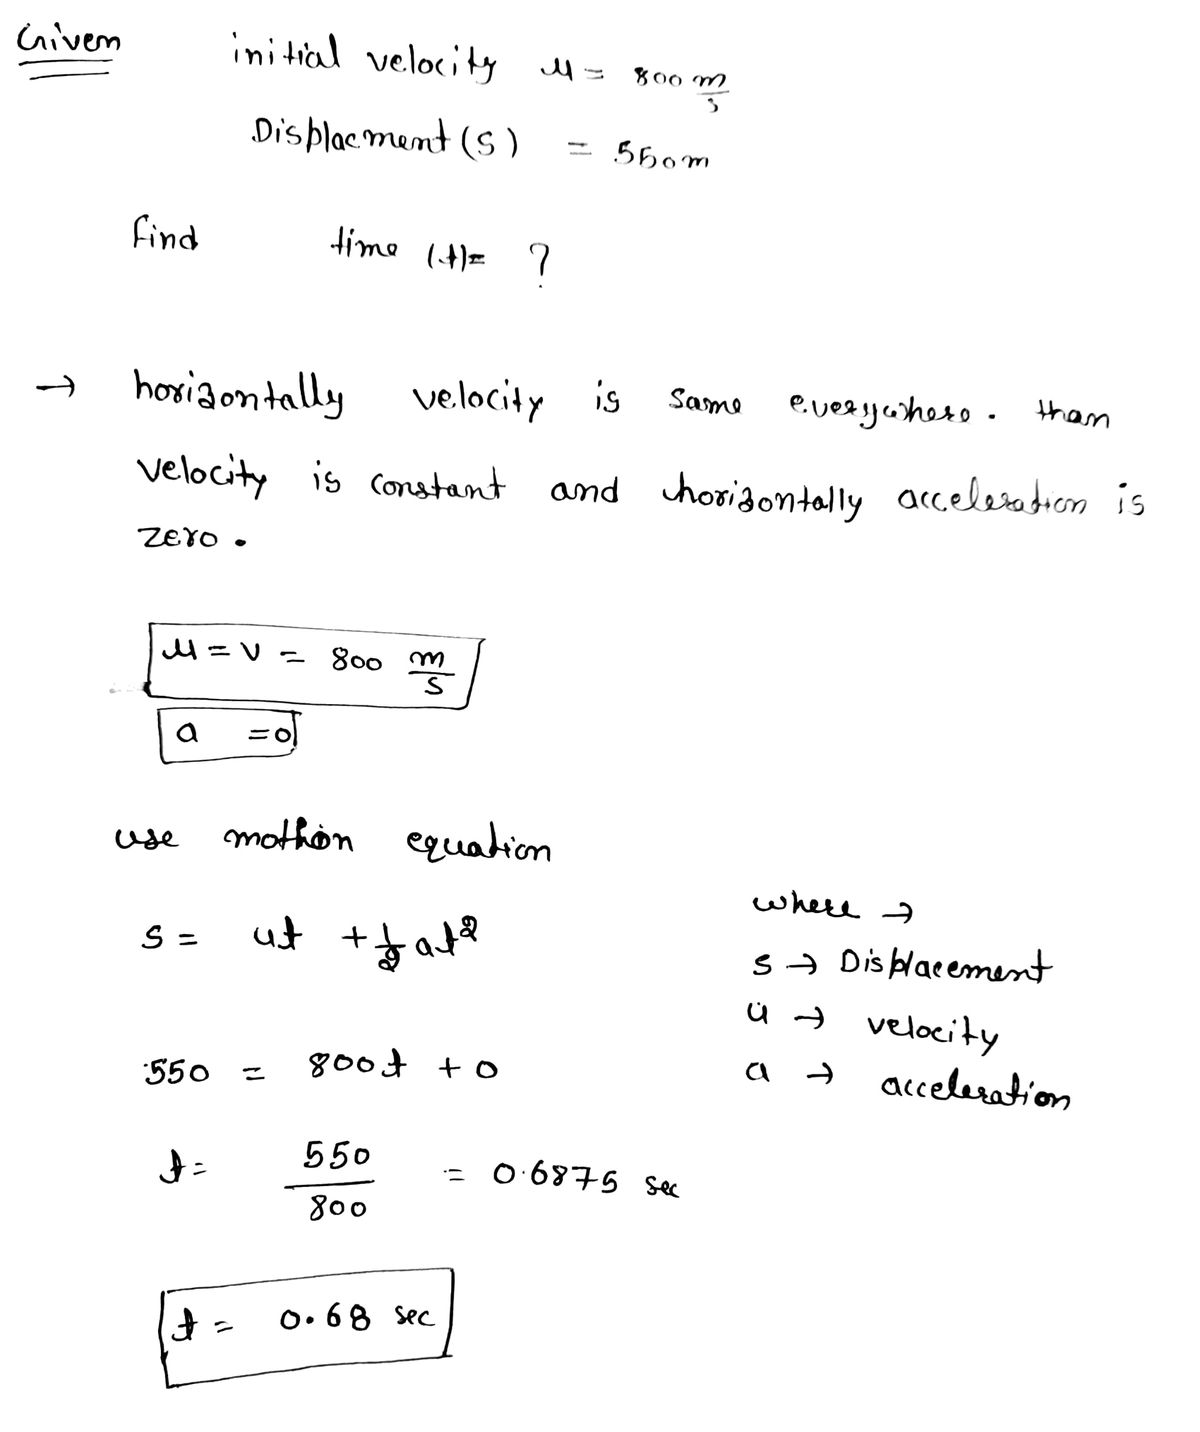 Given
initial velocity u = 800 m/s
Displacment (s) = 550m
find time (t)= ?
→ horizontally velocity is same everywhere. than
velocity is constant and horizontally acceleration is
zero.
u = v = 800 m/s
a = 0
use mothion equation
s = ut + 1/2 at²
where →
s → Displacement
u → velocity
a → acceleration
550 = 800t + 0
t = 550/800 = 0.6875 sec
t = 0.68 sec